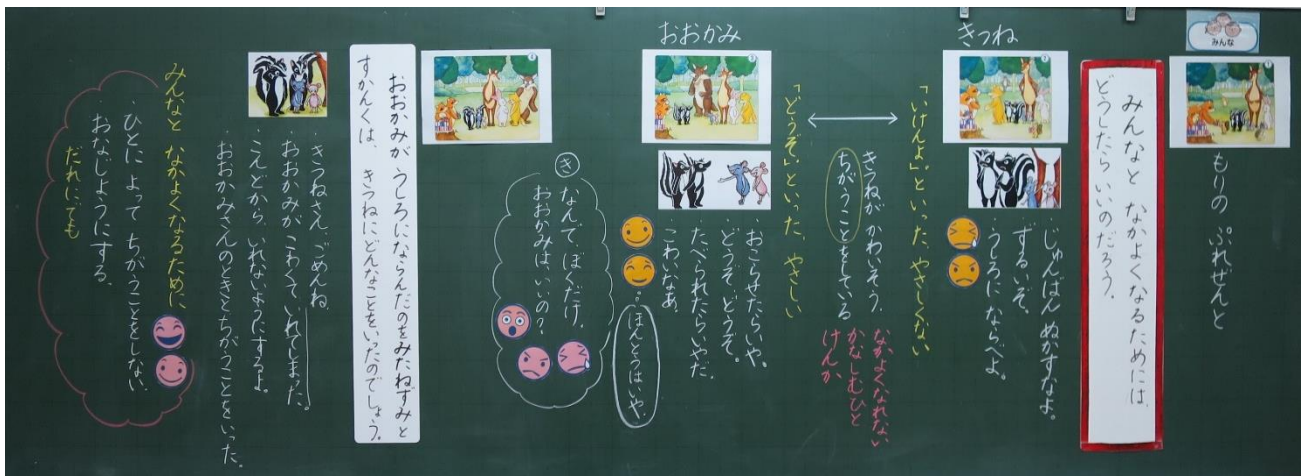 みんな
もりの ぷれぜんと
みんなと なかよくなるためには、
どうしたら いいのだろう。
きつね
じゅんばん ぬかすなよ。
ずるいぞ。
うしろに ならべよ。
「いけんよ。」といった、やさしくない
きつねが かわいそう。
ちがうことをしている
なかよくなれない
かなしむひと
けんか
「どうぞ。」といった、やさしい
おおかみ
おこらせたらいや。
どうぞ、どうぞ。
たべられたらいやだ。
こわいなあ。
ほんとうはいや。
き
なんで ぼくだけ。
おおかみは、いいの?
おおかみが うしろにならんだのをみたねずみと
すかんくは、きつねにどんなことをいったのでしょう。
・きつねさん、ごめんね。
おおかみが こわくていれてしまった。
・こんどから いれないようにするよ。
・おおかみさんのときとちがうことをいった。
みんなと なかよくなるために
・ひとに よって ちがうことをしない。
・おなじようにする。
だれにでも